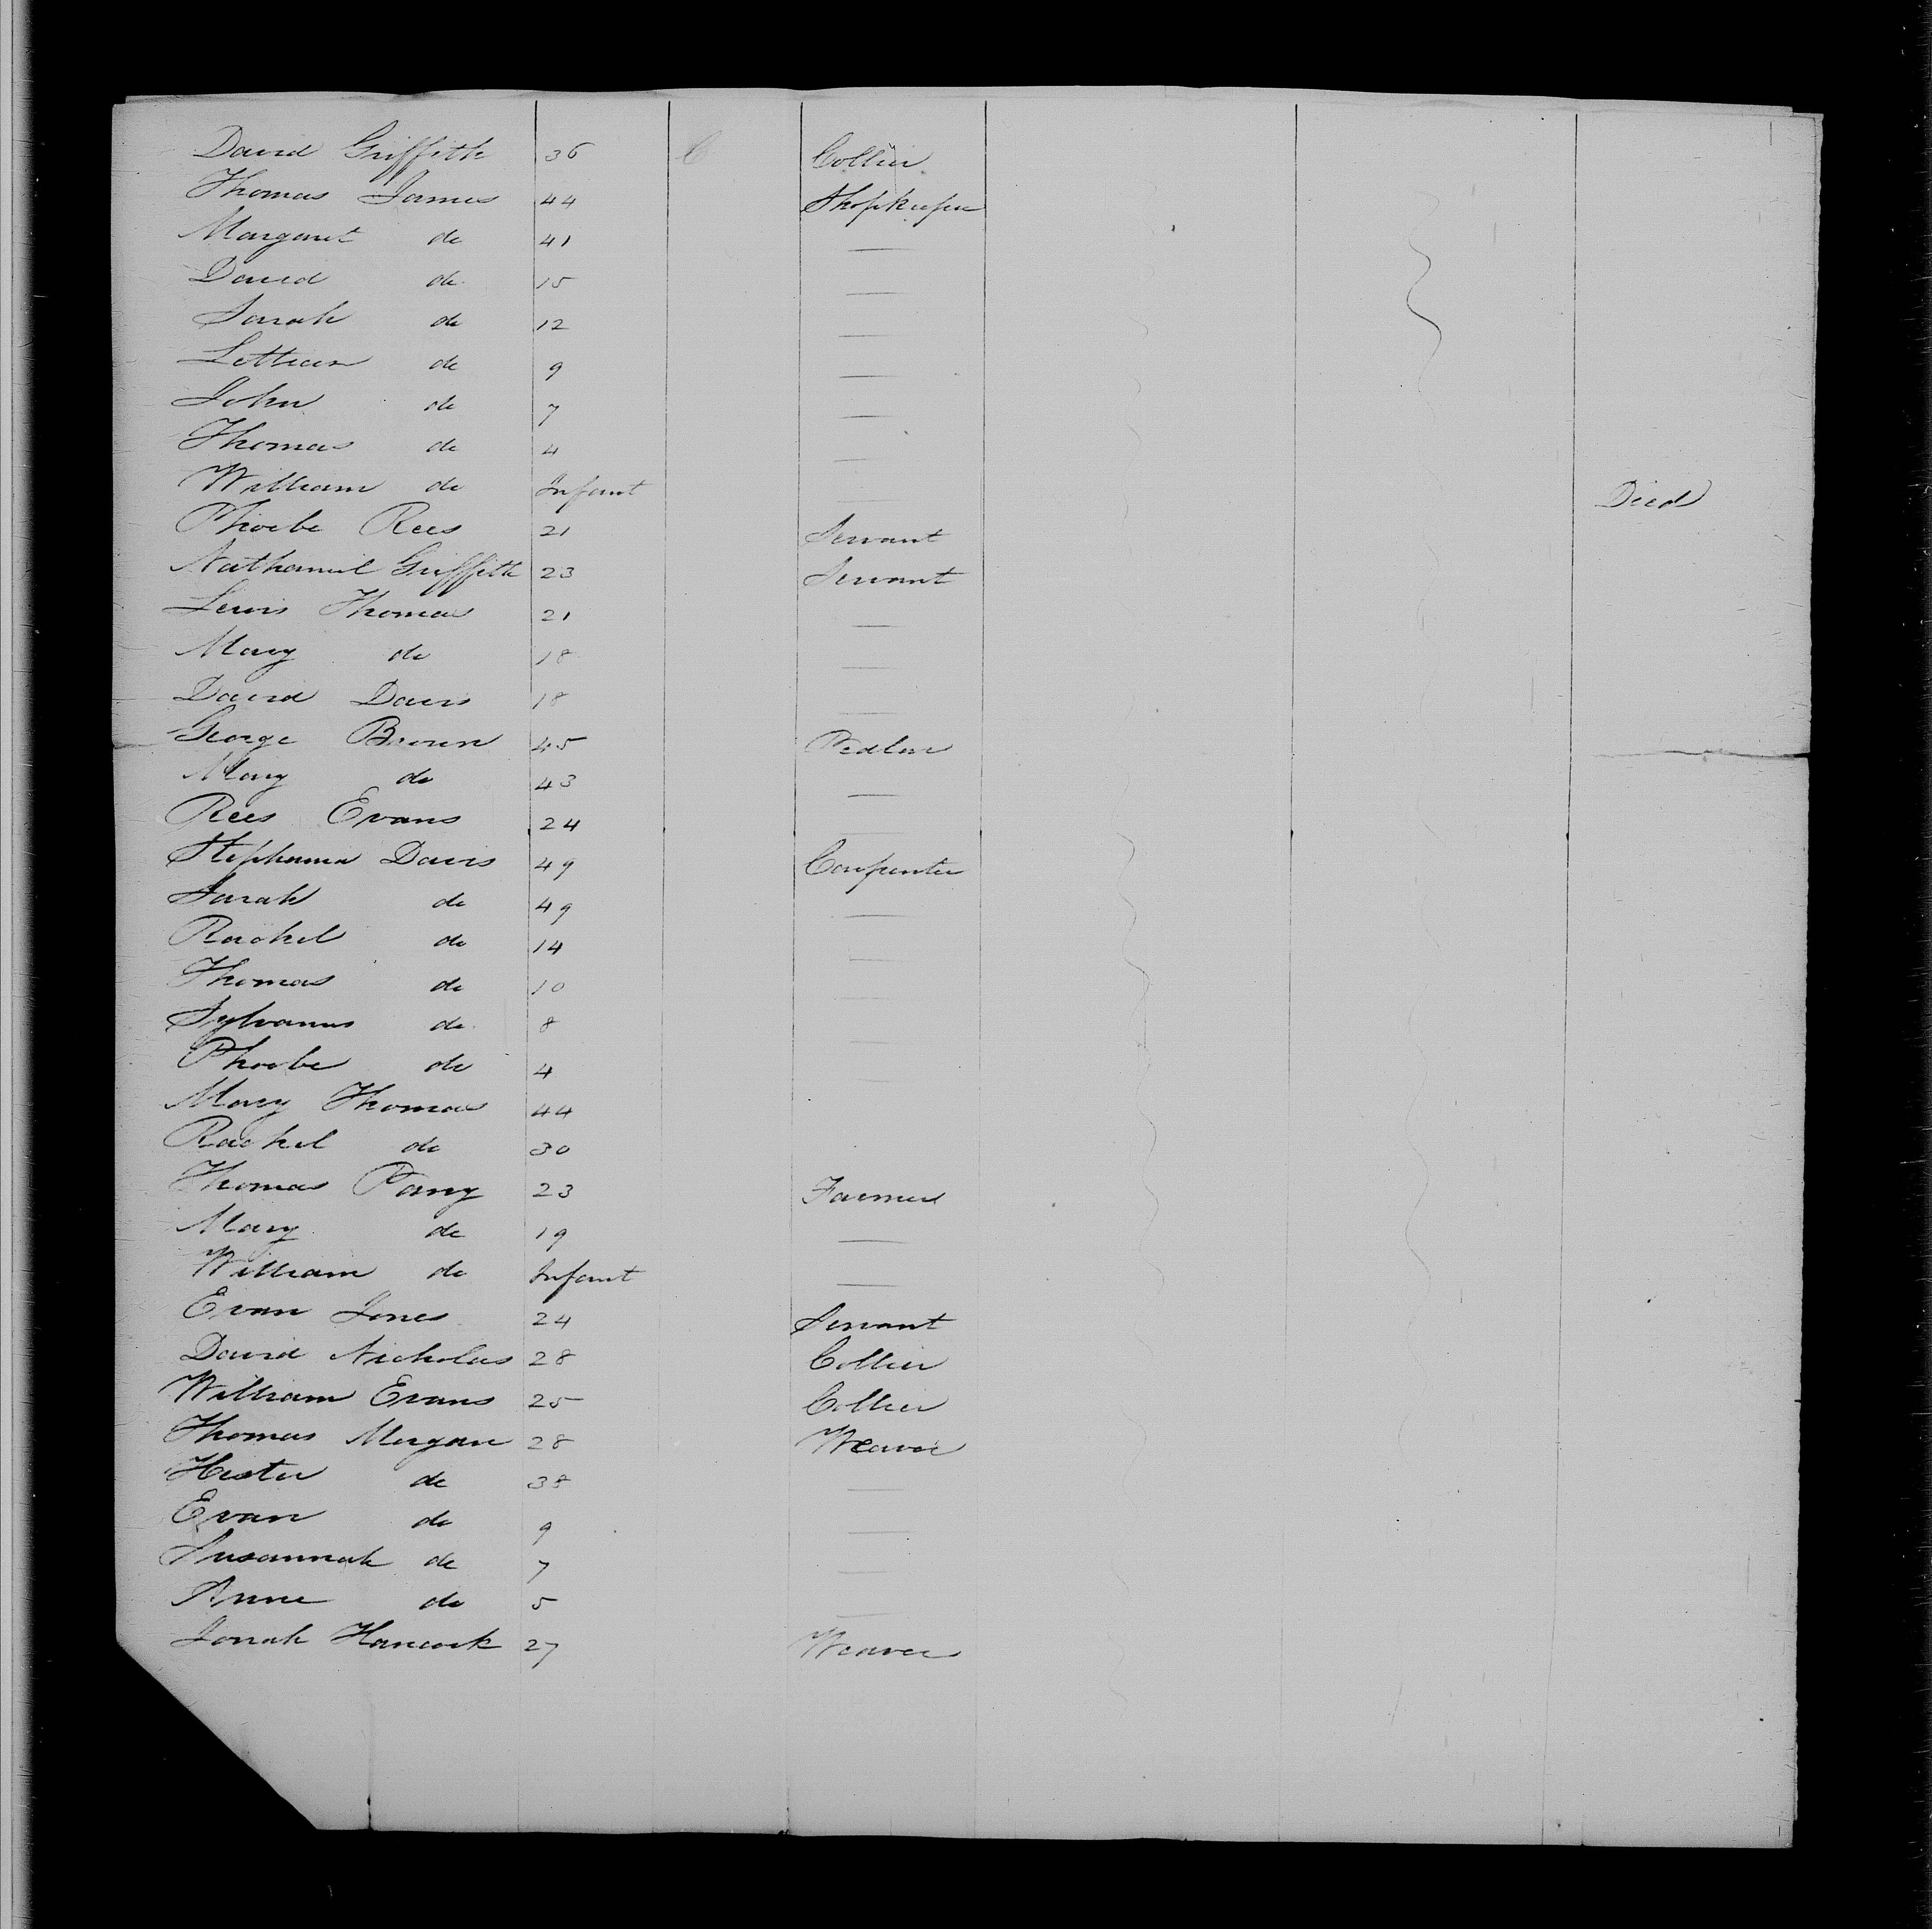 David Griffith 36 C Collier
Thomas James 44 Shopkeeper
Margaret do 41 —
David do 15 —
Sarah do 12 —
do 9 —
John do 7 —
Thomas do 4 —
William do Infant — Died
Phoebe Rees 21 Servant
Nathaniel Griffith 23 Servant
Lewis Thomas 21 —
Mary do 18 —
David Davis 18 —
George Brown 45 Pedlar
Mary do 43 —
Rees Evans 24 —
Davis 49 Carpenter
Sarah do 49 —
Rachel do 14 —
Thomas do 10 —
Sylvanus do 8 —
Phoebe do 4 —
Mary Thomas 44
Rachel do 30
Thomas Parry 23 Farmer
Mary do 19 —
William do Infant —
Evan Jones 24 Servant
David Nicholas 28 Collier
William Evans 25 Collier
Thomas Morgan 28 Weaver
Hester do 38 —
Evan do 9 —
Susannah do 7 —
Anne do 5 —
Jonah Hancock 27 Weaver